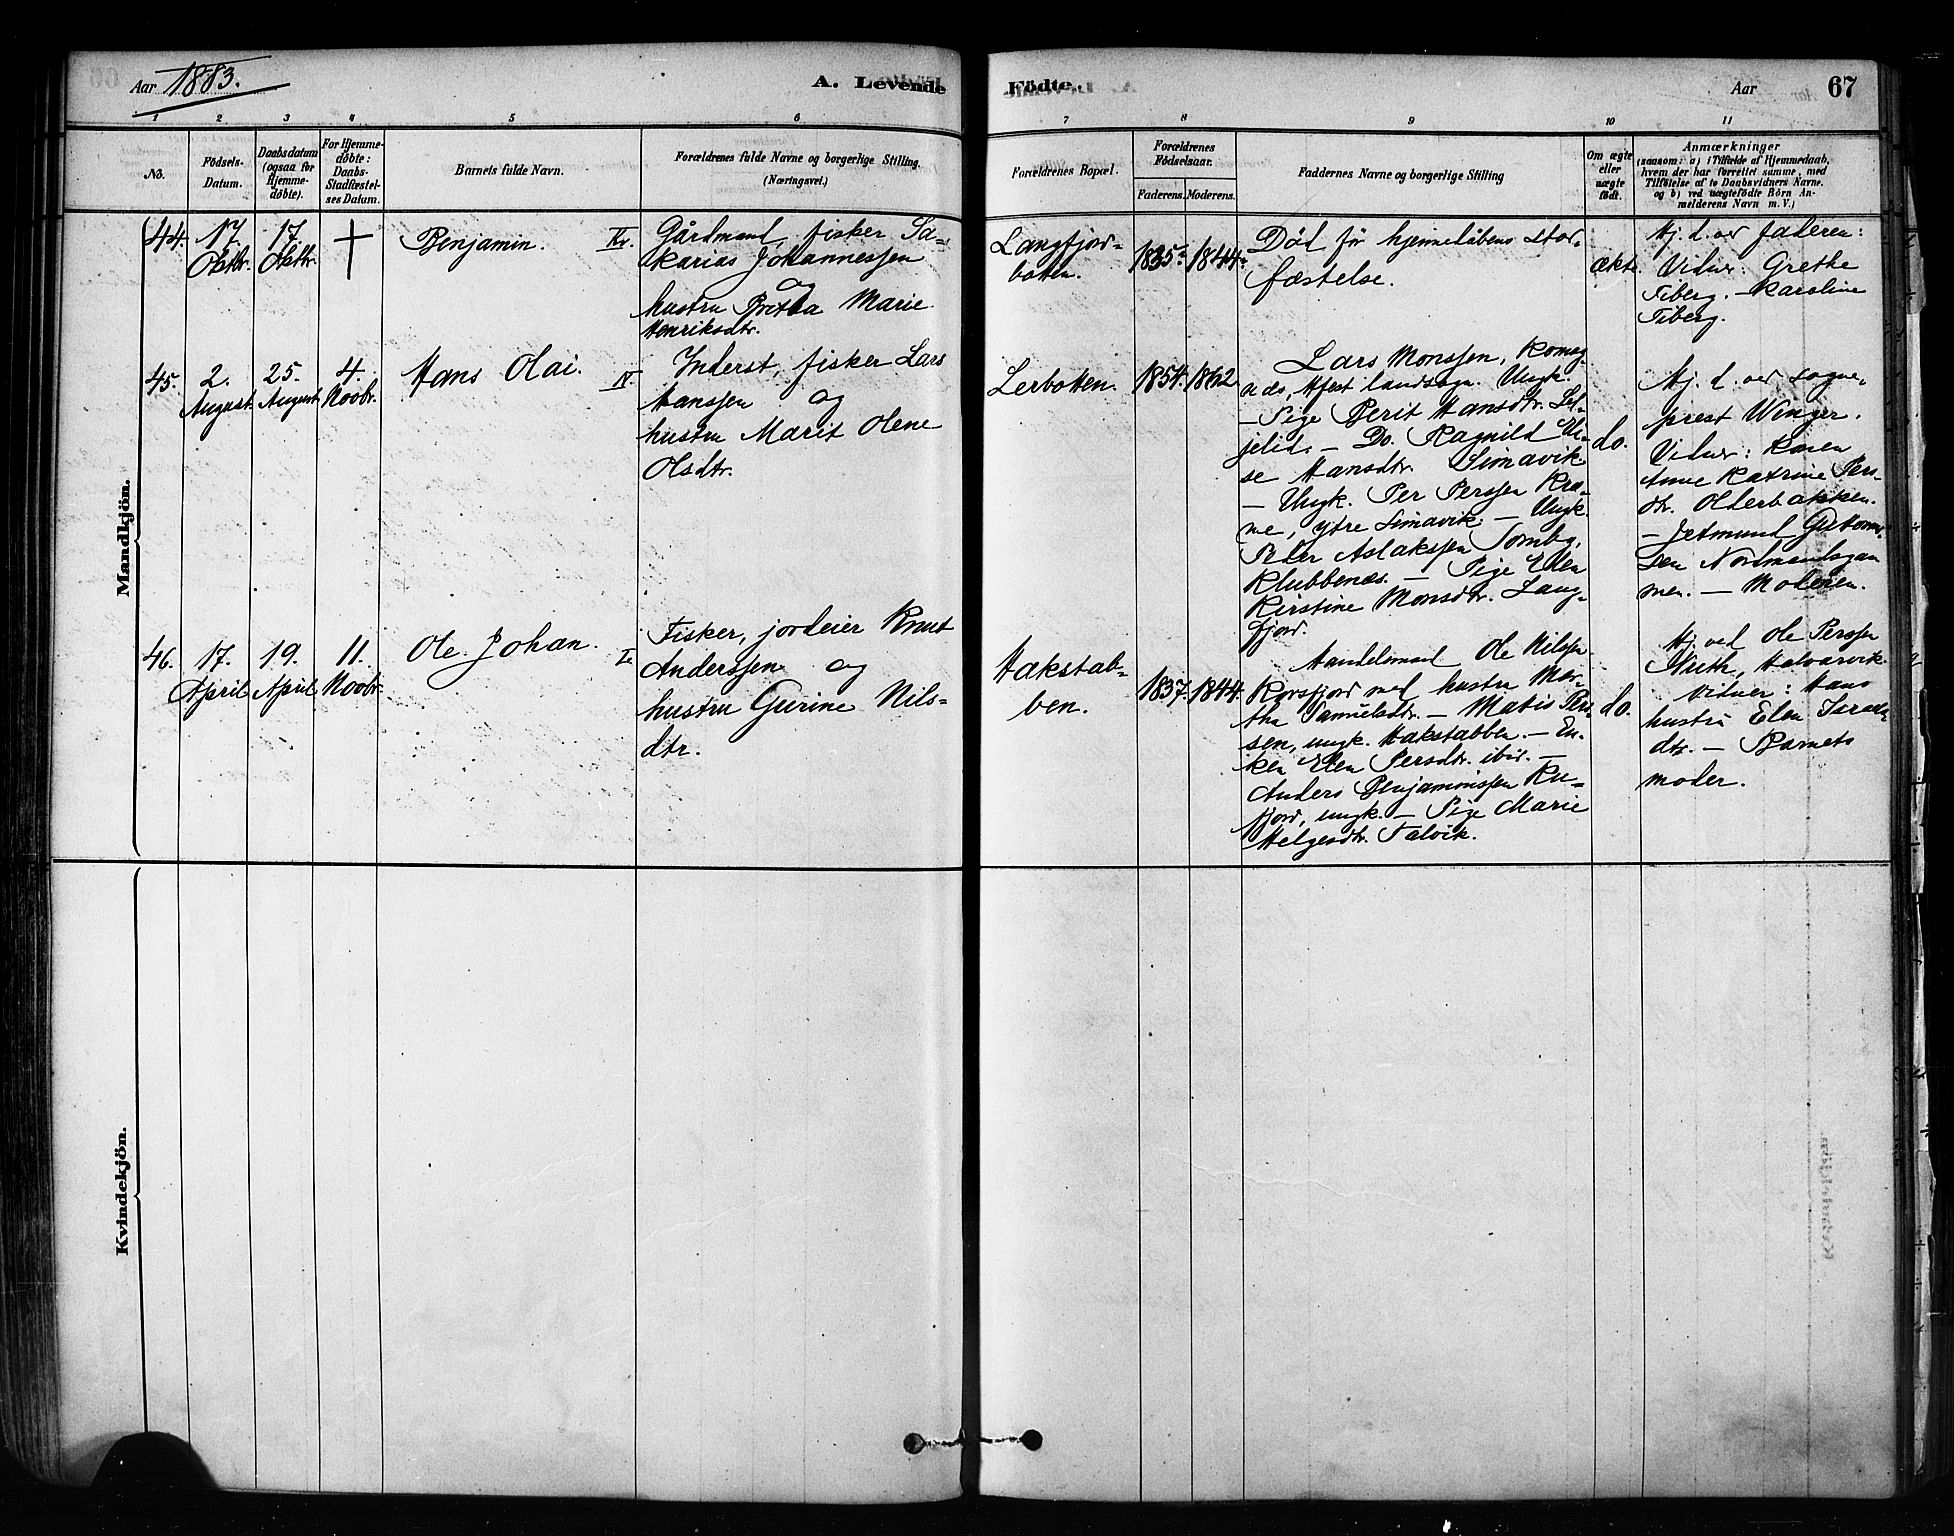 Aar 1883.
A. Levende
Födte.
Aar
67
1 2 3 4 5 6
7 8 9 10 11
No.
Födsels-
Datum.
Daabsdatum
(ogsaa for
Hjemme-
döbte).
For Hjemme-
döbte:
Daabs-
Stadfæstel-
ses Datum.
Barnets fulde Navn.
Forældrenes fulde Navne og borgerlige Stilling.
(Næringsvei.)
Forældrenes Bopæl.
Forældrenes
Födselsaar.
Faderens. Moderens.
Faddernes Navne og borgerlige Stilling
Om ægte
eller
uægte
født.
Anmærkninger
(saasom: a) i Tilfælde af Hjemmedaab,
hvem der har forrettet samme, med
Tilföielse af to Daabsvidners Navne.
og b) ved uægtefödte Börn An-
melderens Navn m. V.)
Mandkjön.
44.
17.
Oktbr.
17.
Oktbr.
†
Benjamin.
Gårdmand, fisker Sa-
karias Johannessen
og
hustru Britha Marie
Henriksdtr.
Langfjord-
botten.
1835
1844
Död för hjemmedåbens stad-
fæstelse.
ækte
Hj. d. ved faderen:
Vidner: Grethe
Fiberg. – Karoline
Fiberg.
45.
2.
August
25.
August
4.
Novbr.
Hans Olai.
IV.
Inderst, fisker Lars
Hanssen og
hustru Marit Olene
Olsdtr.
Lerbotten.
1854.
1862
Lars Monssen,
landsogn. Ungk.
– Pige Berit Hansdtr.
– Do. Ragnild
Hansdtr. Simavik
– Ungk. Per Perssen
ytre Simavik. – Ungk.
Peter Aslakssen
Klubbenæs. – Pige Elen
Kerstine Monsdtr. Lang-
fjord.
do.
Hj. d. ved sogne-
prest Winger.
Vidner: Karen
Anne Katrine Pers-
dtr. Olderbakken.
– Jetmund
sen Normandsgam
men. – Moderen.
46.
17.
April
19.
April
11.
Novbr.
Ole Johan.
I.
Fisker, jordeier Knut
Anderssen og
hustru Gurine Nils-
dtr.
Hakstab-
ben.
1837.
1844.
Handelsmand Ole Nilssen
Korsfjord med hustru Mar-
tha Samuelsdtr. – Matis Pers-
sen, ungk. Hakstabben. – En-
ken Elen Persdtr. ibid. –
Anders Benjaminssen
fjord, ungk. – Pige Marie
Helgesdtr. Talvik.
do.
Hj. ved Ole Perssen
Halvarvik
Vidner: Hans
hustru Elen Israels-
dtr. – Barnets
moder.
Kvindekjön.